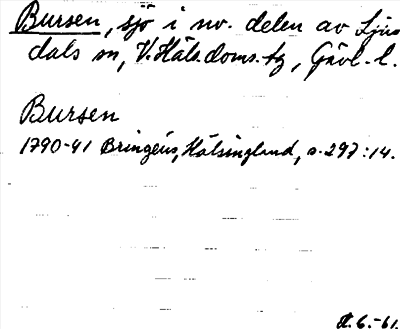 Bursen, sjö i nv. delen av Ljus
dals sn, V. Häls. doms. tg, Gävl. l.
Bursen
1790-41 Bringéus, Hälsingland, s. 297:14.
H. 6.-61.